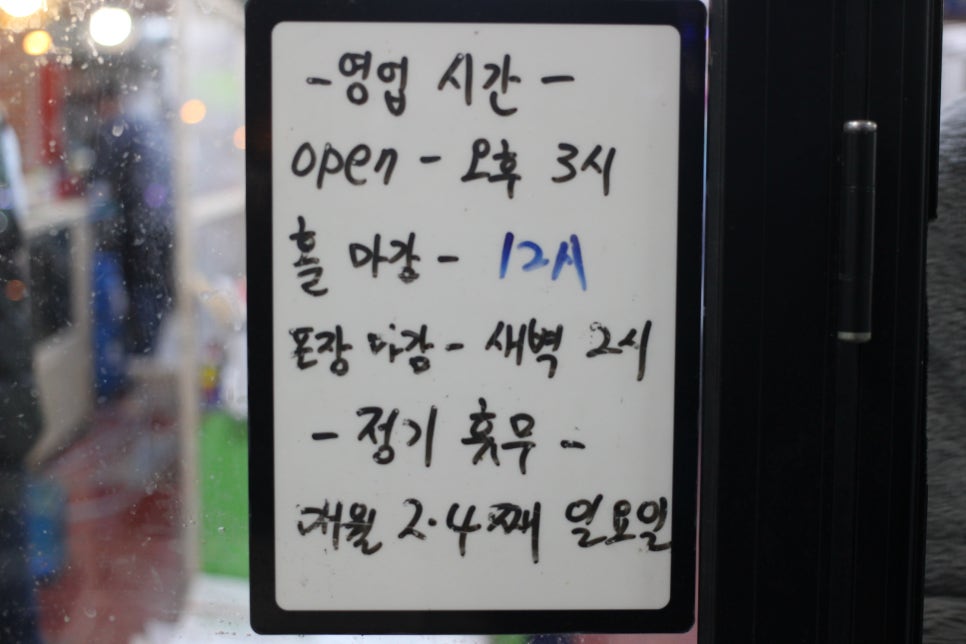 -영업 시간-
open - 오후 3시
홀 마감 - 12시
포장 마감 - 새벽 2시
- 정기 휴무 -
매월 2·4째 일요일